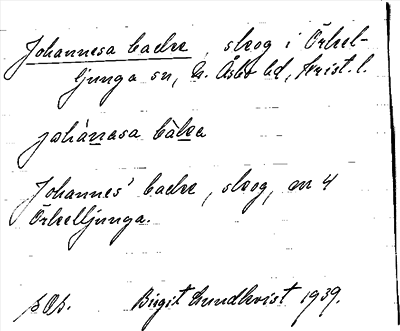 Johannesa backe, skog i Örkel-
ljunga sn, N. Åsbo hd, Krist. l.
johànasa bàka
Johannes' backe, skog, om 4
Örkelljunga.
Birgit Lundkvist 1939.